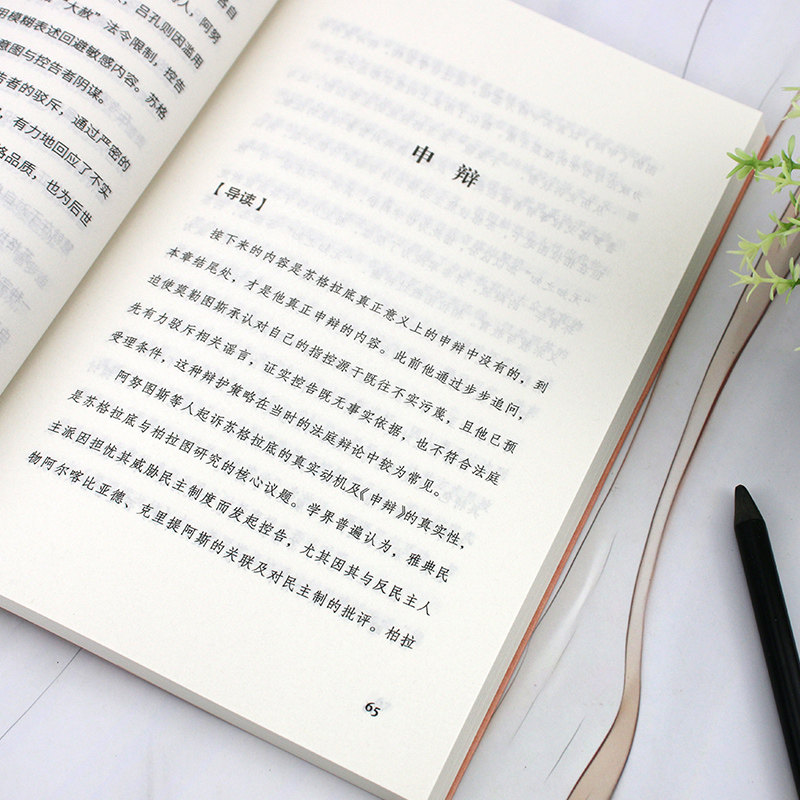 各自
人，阿努
吕孔则因滥用
“大赦”法令限制，控告
用模糊表述回避敏感内容。苏格
意图与控告者阴谋。
告者的驳斥，通过严密的
，有力地回应了不实
格品质，也为后世
申辩
【导读】
接下来的内容是苏格拉底真正意义上的申辩中没有的，到
本章结尾处，才是他真正申辩的内容。此前他通过步步追问，
迫使莫勒图斯承认对自己的指控源于既往不实污蔑，且他已预
先有力驳斥相关谣言，证实控告既无事实依据，也不符合法庭
受理条件，这种辩护策略在当时的法庭辩论中较为常见。
阿努图斯等人起诉苏格拉底的真实动机及《申辩》的真实性，
是苏格拉底与柏拉图研究的核心议题。学界普遍认为，雅典民
主派因担忧其威胁民主制度而发起控告，尤其因其与反民主人
物阿尔喀比亚德、克里提阿斯的关联及对民主制的批评。柏拉
65